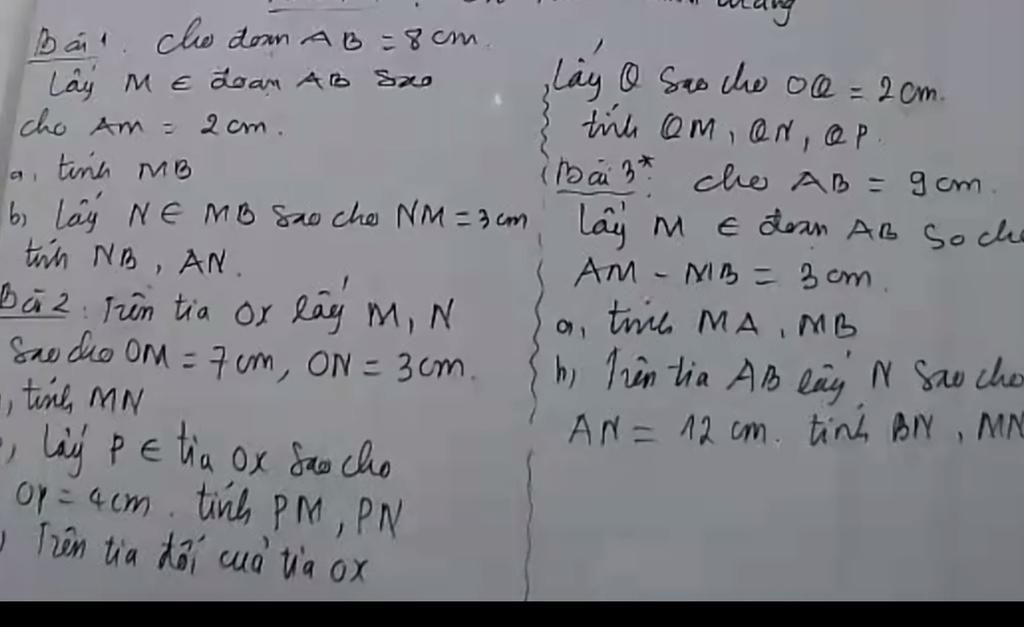 Bài 1. cho đoạn AB = 8cm.
Lấy M ∈ đoạn AB sao
cho AM = 2cm.
a, tính MB
b) lấy N ∈ MB sao cho NM = 3cm
tính NB, AN.
Bài 2. Trên tia Ox lấy M, N
sao cho OM = 7cm, ON = 3cm.
, tính MN
, lấy P ∈ tia Ox sao cho
OP = 4cm. tính PM, PN
) Trên tia đối của tia Ox
lấy Q sao cho OQ = 2cm.
tính QM, QN, QP.
Bài 3*. cho AB = 9cm.
Lấy M ∈ đoạn AB so cho
AM - MB = 3cm.
a, tính MA, MB
b, Trên tia AB lấy N sao cho
AN = 12cm. tính BN, MN